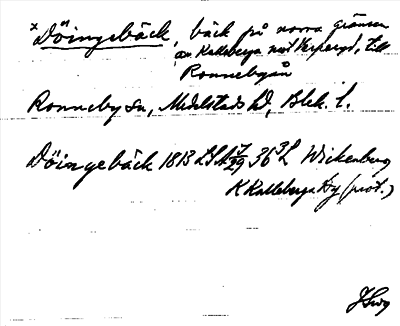 x Döingebäck, bäck på norra gränsen
av Kalleberga mot Yxsperyd, till
Ronnebyån
Ronneby sn, Medelstads hd, Blek. l.
Döingebäck 1813 LSA 36 Wickenberg
K Kalleberga By (prot.)